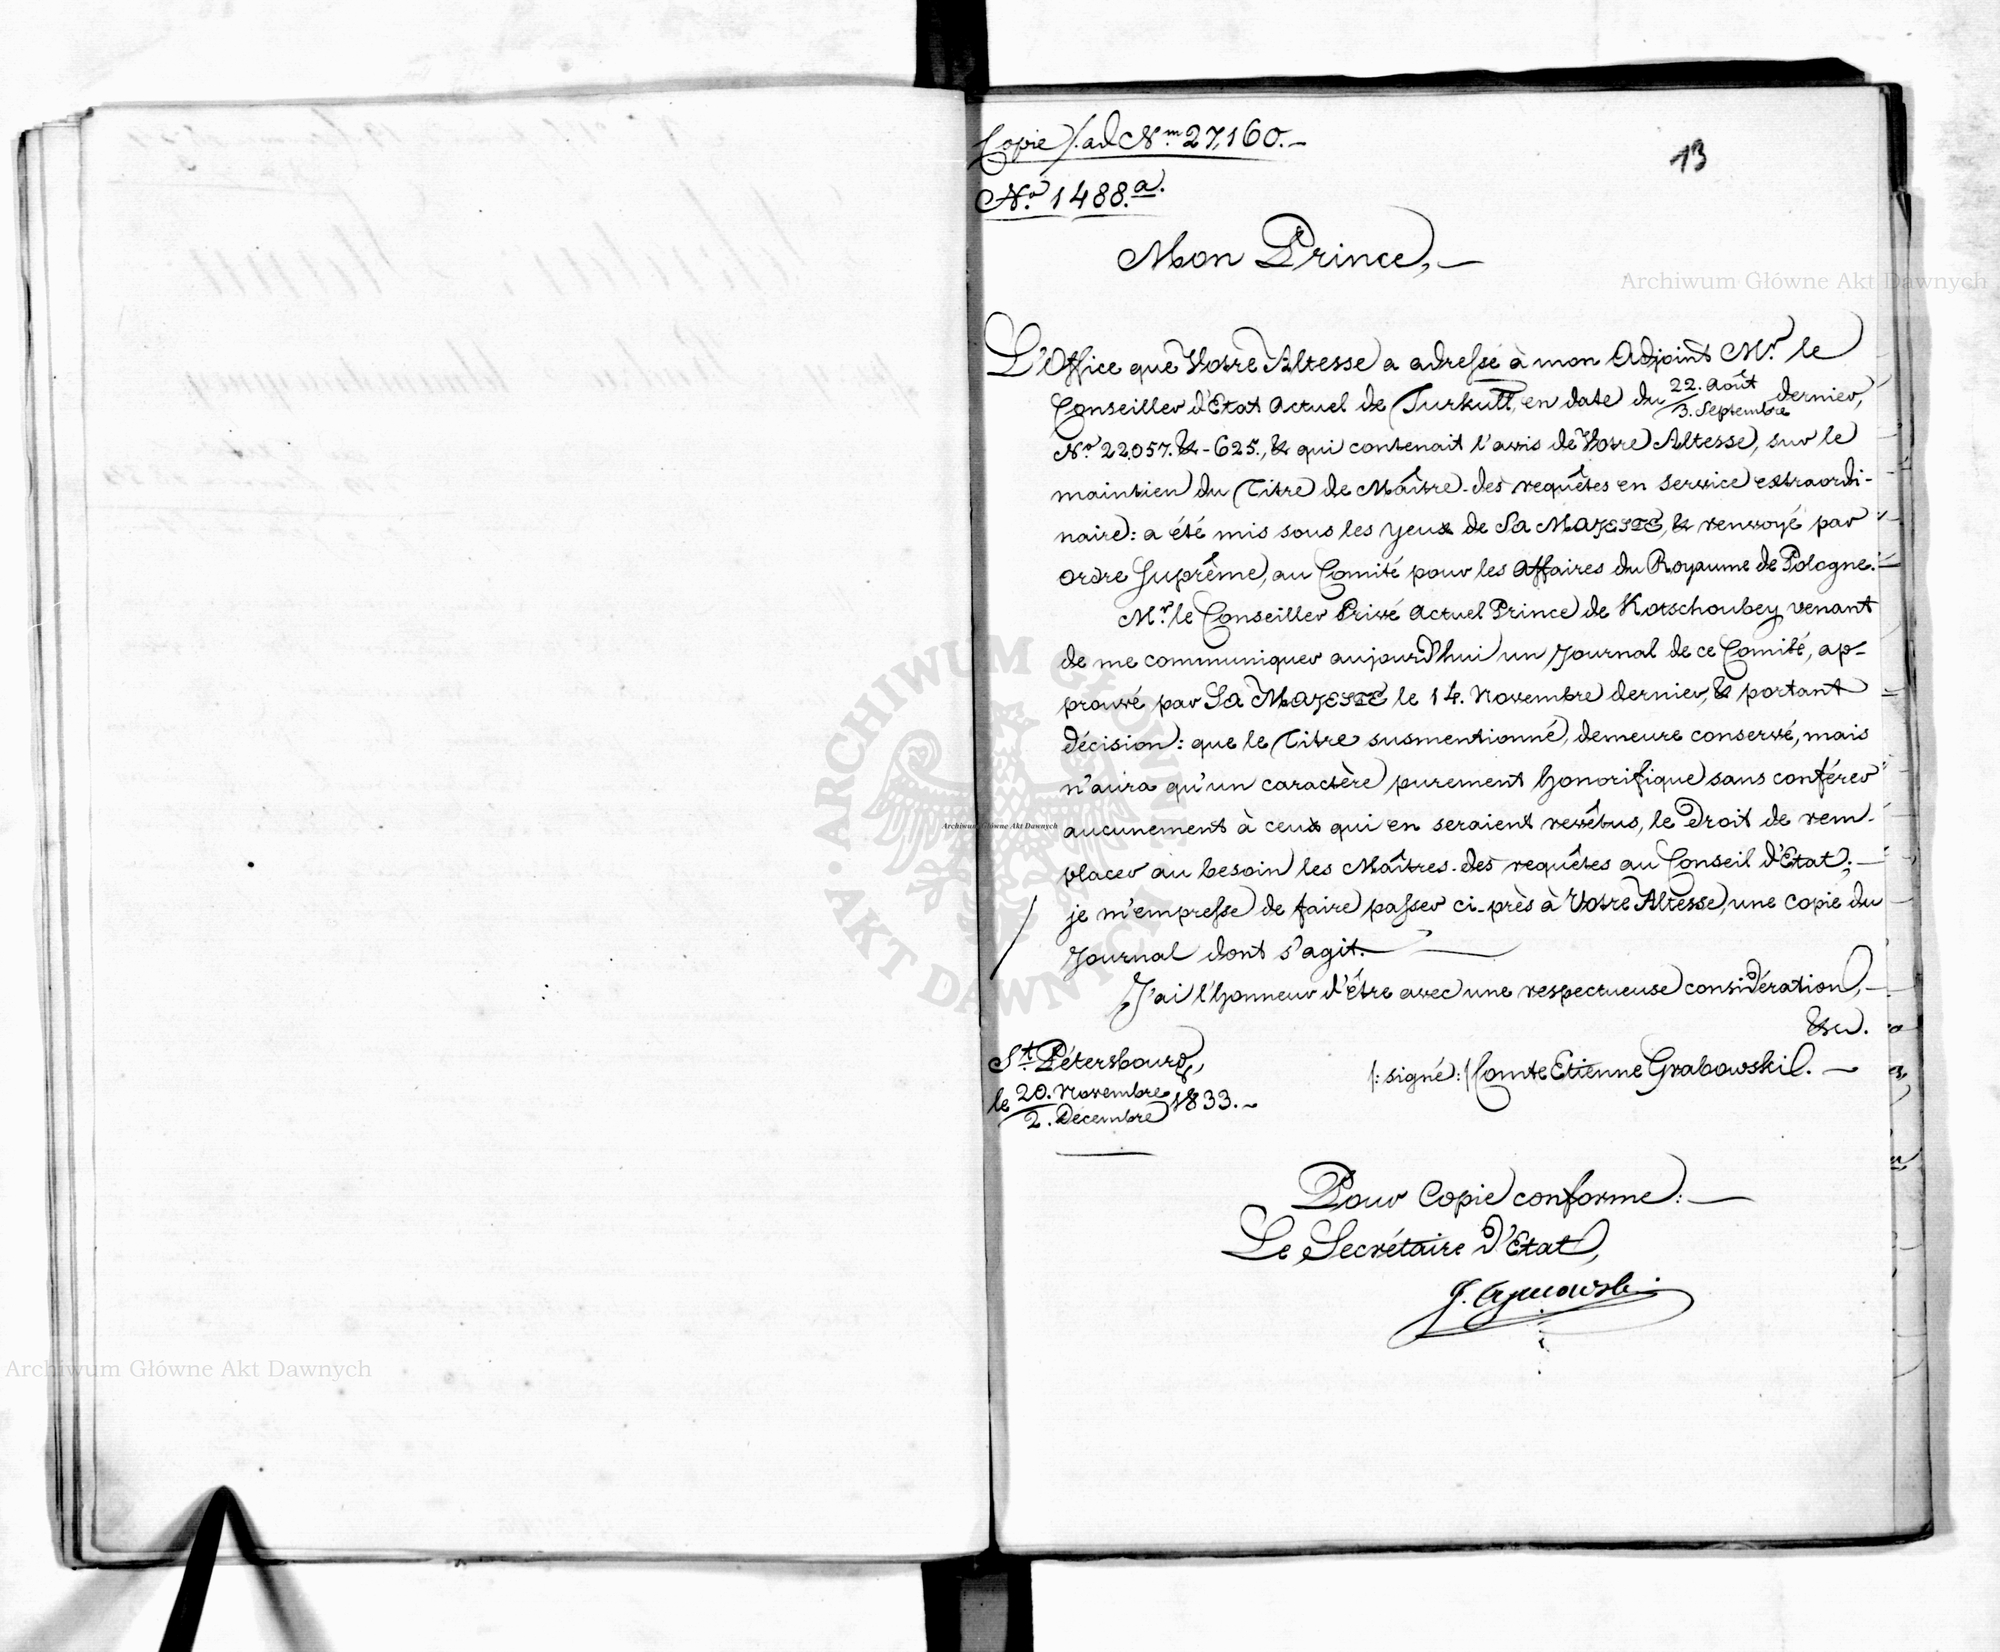 Copie /. ad N.m 27,160. –
13
N.o 1488.a.
Mon Prince, –
L'Office que Votre Altesse a adressé à mon Adjoint Mr. le
Conseiller d'Etat Actuel de Turkull, en date du 22. Août / 3. Septembre dernier,
No. 22,057. & - 625., & qui contenait l'avis de Votre Altesse, sur le
maintien du Titre de Maître-des requêtes en service extraordi-
naire: a été mis sous les yeux de SA MAJESTÉ, & renvoyé par
ordre Suprême, au Comité pour les Affaires du Royaume de Pologne. –
Mr. le Conseiller Privé Actuel Prince de Kotschoubey venant
de me communiquer aujourd'hui un Journal de ce Comité, ap-
prouvé par SA MAJESTÉ le 14. Novembre dernier, & portant
décision: que le Titre susmentionné, demeure conservé, mais
n'aura qu'un caractère purement honorifique sans conférer
aucunement à ceux qui en seraient revêtus, le Droit de rem-
placer au besoin les Maîtres-des requêtes au Conseil d'Etat; –
je m'empresse de faire passer ci-près à Votre Altesse, une copie du
Journal dont s'agit. –
J'ai l'honneur d'être avec une respectueuse considération, –
&cc.
St. Pétersbourg,
le 20. Novembre / 2. Décembre 1833. –
/: signé: / Comte Etienne Grabowski. –
Pour Copie conforme: –
Le Secrétaire d'Etat,
Archiwum Główne Akt Dawnych
Archiwum Główne Akt Dawnych
Archiwum Główne Akt Dawnych
ARCHIWUM GŁÓWNE AKT DAWNYCH